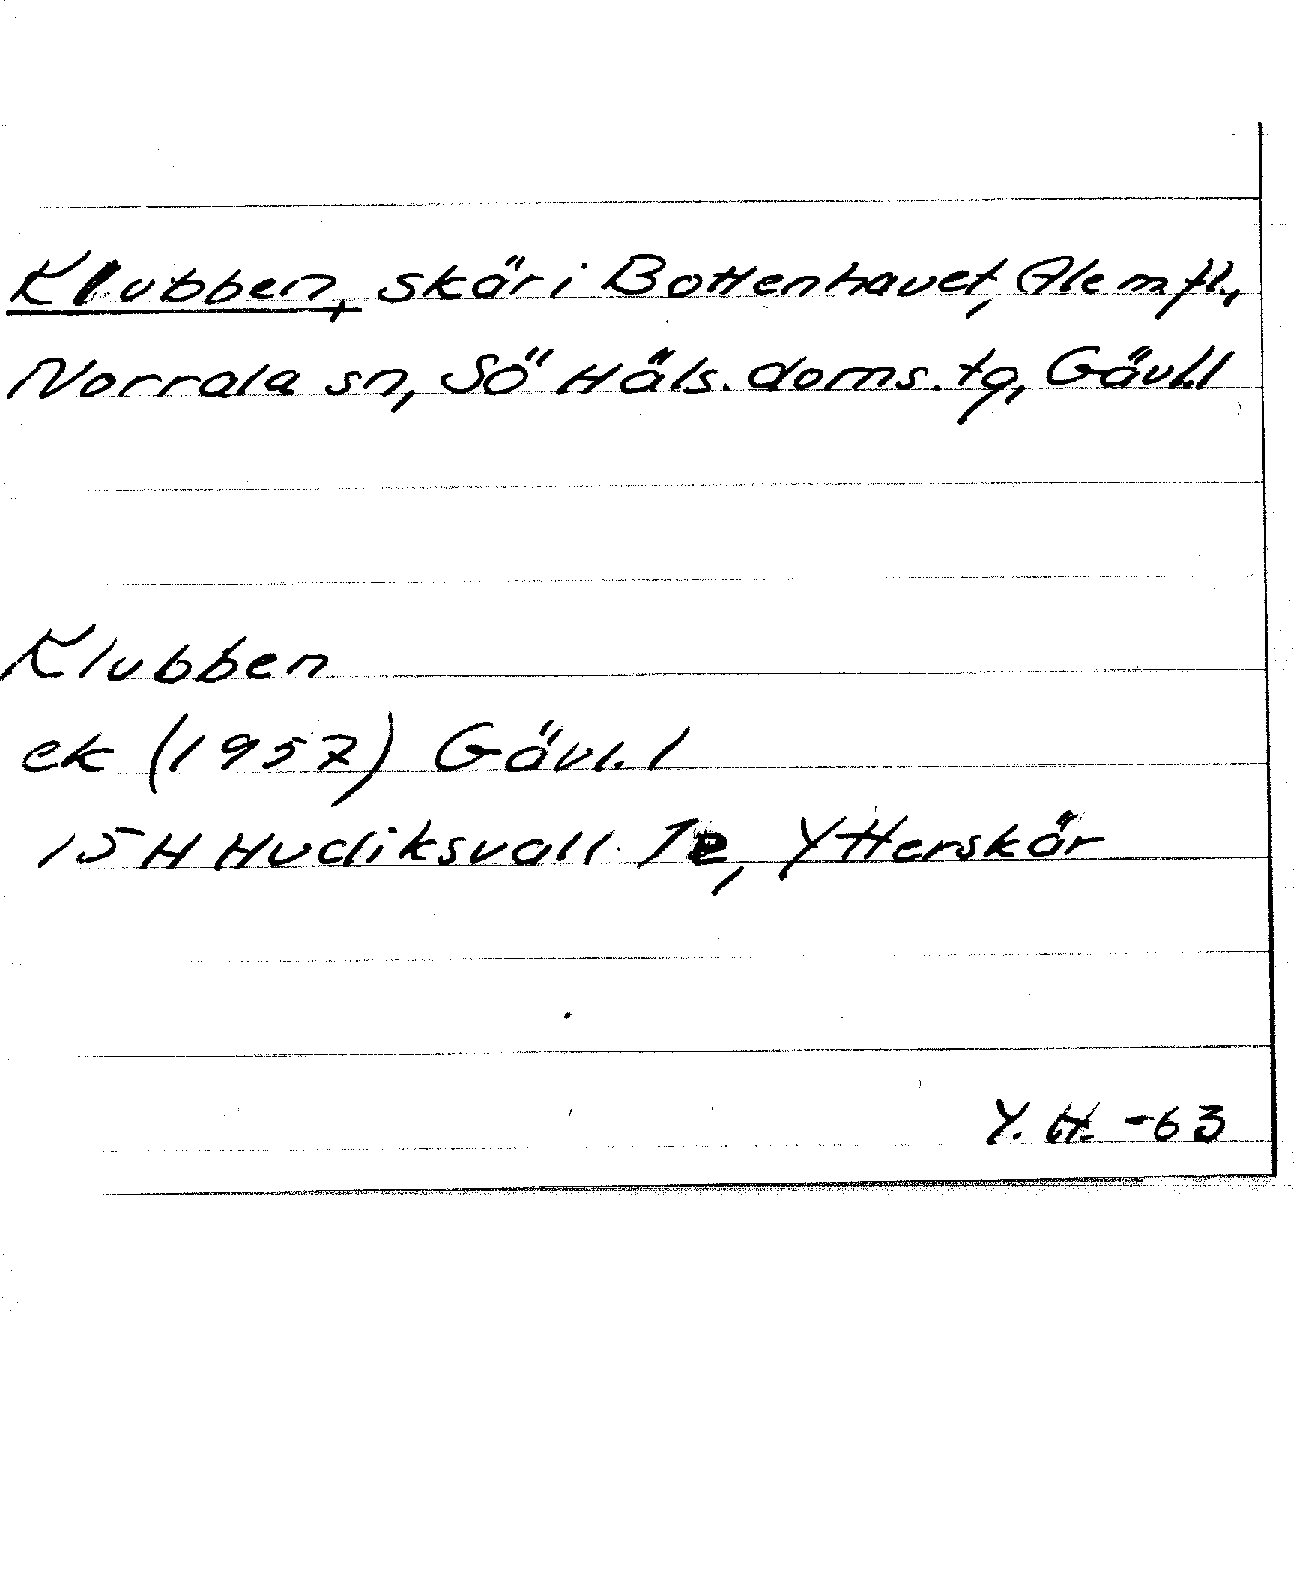 Klubben, skär i Bottenhavet, Ale m fl.,
Norrala sn, Sö Häls. doms. tg, Gävl. l
Klubben
ek (1957) Gävl. l
15 H Hudiksvall 7e, Ytterskär
Y. H. -63